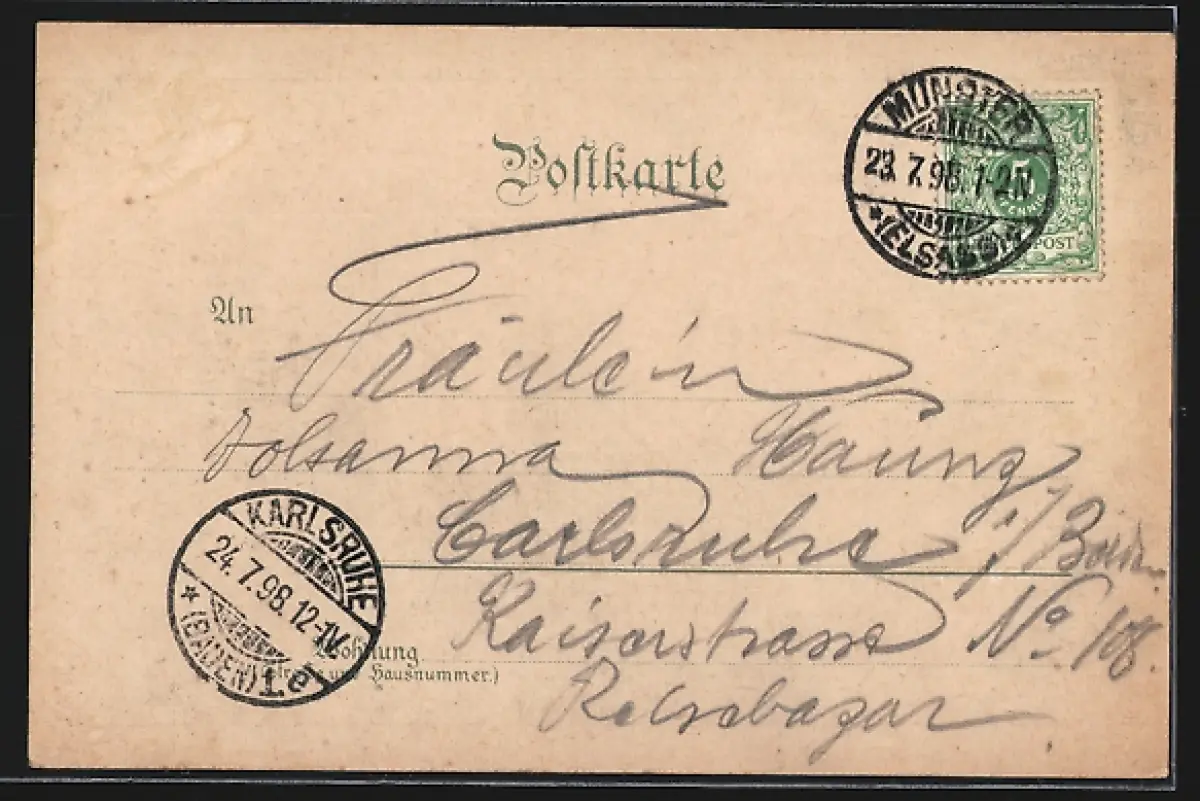 Postkarte
MÜNSTER
23.7.98.1-2N
*(ELSASS)*
5
POST
An
Fräulein
Haung
Carlsruhe i/Baden
Kaiserstrasse No 108.
Reisebazar
KARLSRUHE
24.7.98.12-1V.
*(BADEN) 1.e
Wohnung
und Hausnummer.)